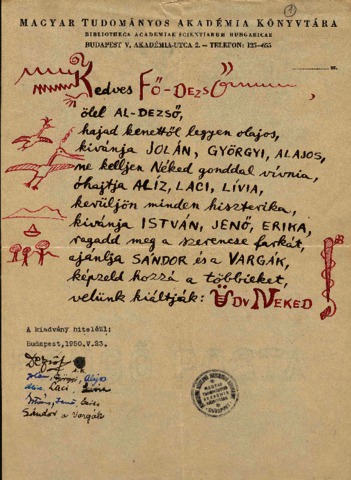 MAGYAR TUDOMÁNYOS AKADÉMIA KÖNYVTÁRA
BIBLIOTHECA ACADEMIAE SCIENTIARUM HUNGARICAE
BUDAPEST V, AKADÉMIA-UTCA 2. — TELEFON: 125-655
Kedves FŐ-DEZSŐ
ölel AL-DEZSŐ,
hajad kenettől legyen olajos,
kivánja JOLÁN, GYÖRGYI, ALAJOS,
ne kelljen Néked gonddal vívnia,
óhajtja ALÍZ, LACI, LÍVIA,
kerüljön minden hisztérika,
kivánja ISTVÁN, JENŐ, ERIKA,
ragadd meg a szerencse farkát,
ajánlja SÁNDOR és a VARGÁK,
képzeld hozzá a többieket,
velünk kiáltják: ÜDV NEKED
A kiadvány hiteléül:
Budapest, 1950.V.23.
Dezső
Jolán, Györgyi, Alajos
Aliz Laci Livia
István, Jenő, Erika
Sándor a Vargák